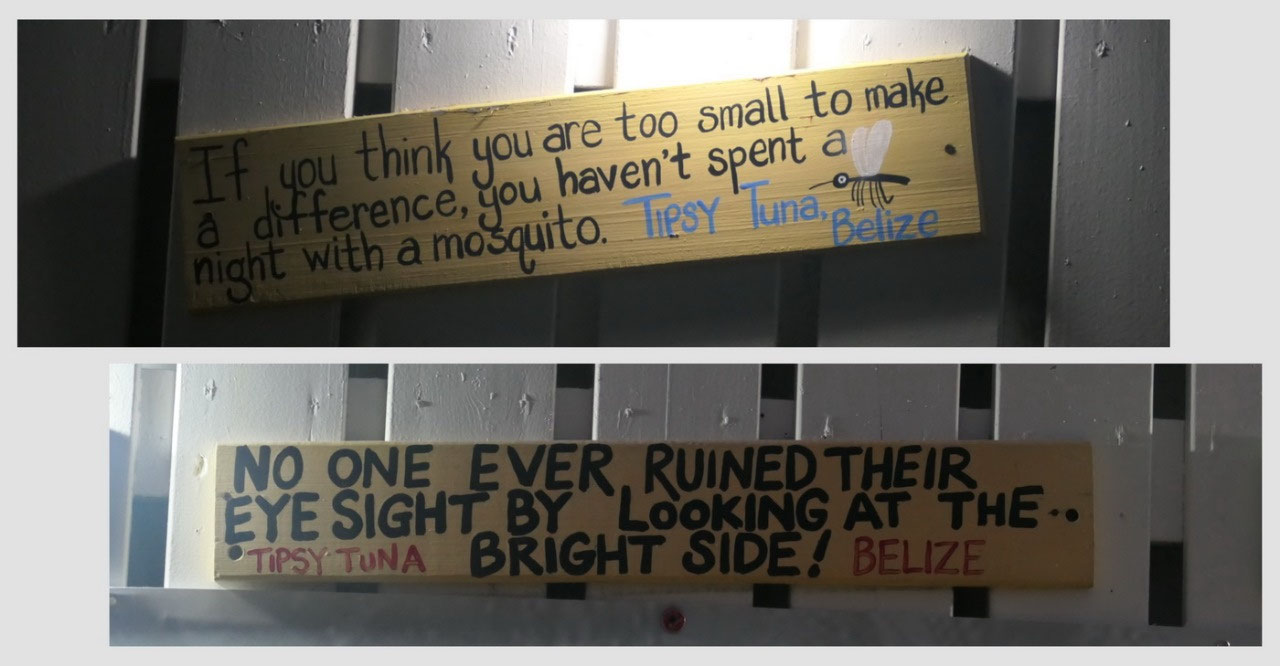 If you think you are too small to make
a difference, you haven't spent a
night with a mosquito. TIPSY Tuna, Belize
NO ONE EVER RUINED THEIR
EYE SIGHT BY LOOKING AT THE..
TIPSY TUNA BRIGHT SIDE! BELIZE